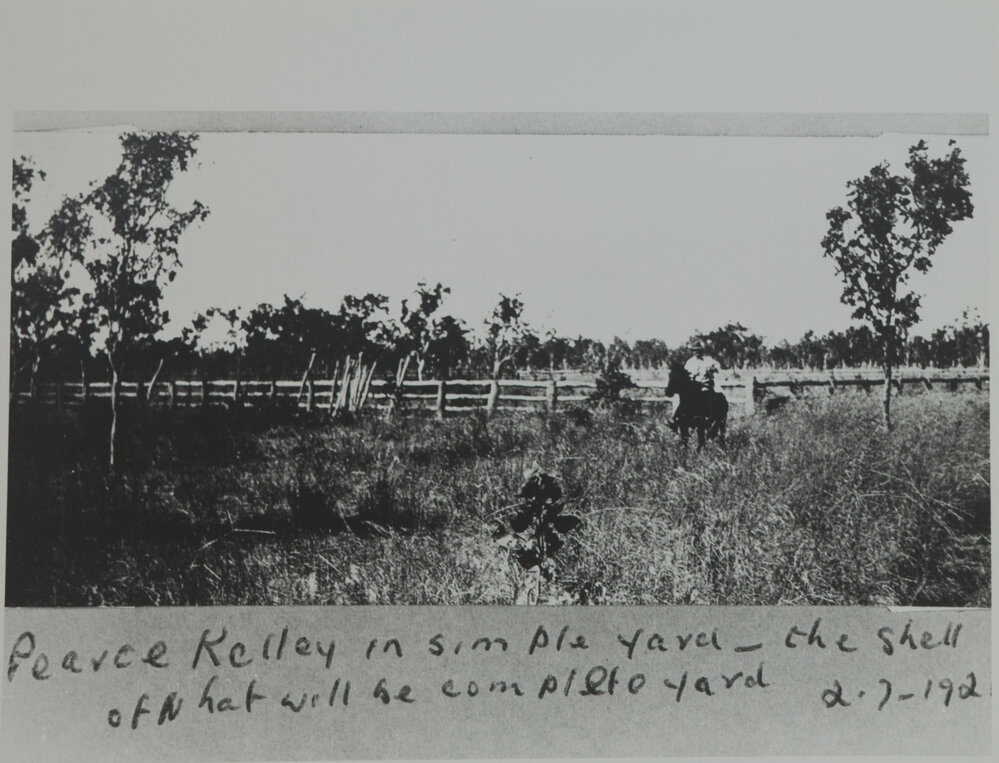 Pearce Kelley in simple yard - the shell
of what will be complete yard 2.7-192